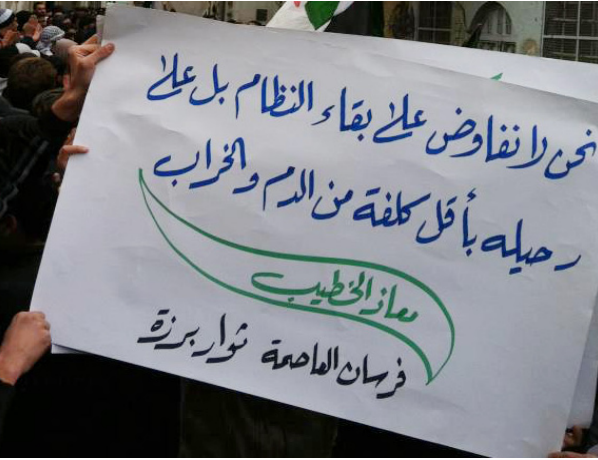 نحن لا نفاوض على بقاء النظام بل على
رحيله بأقل كلفة من الدم والخراب
معاذ الخطيب
فرسان العاصمة ثوار برزة